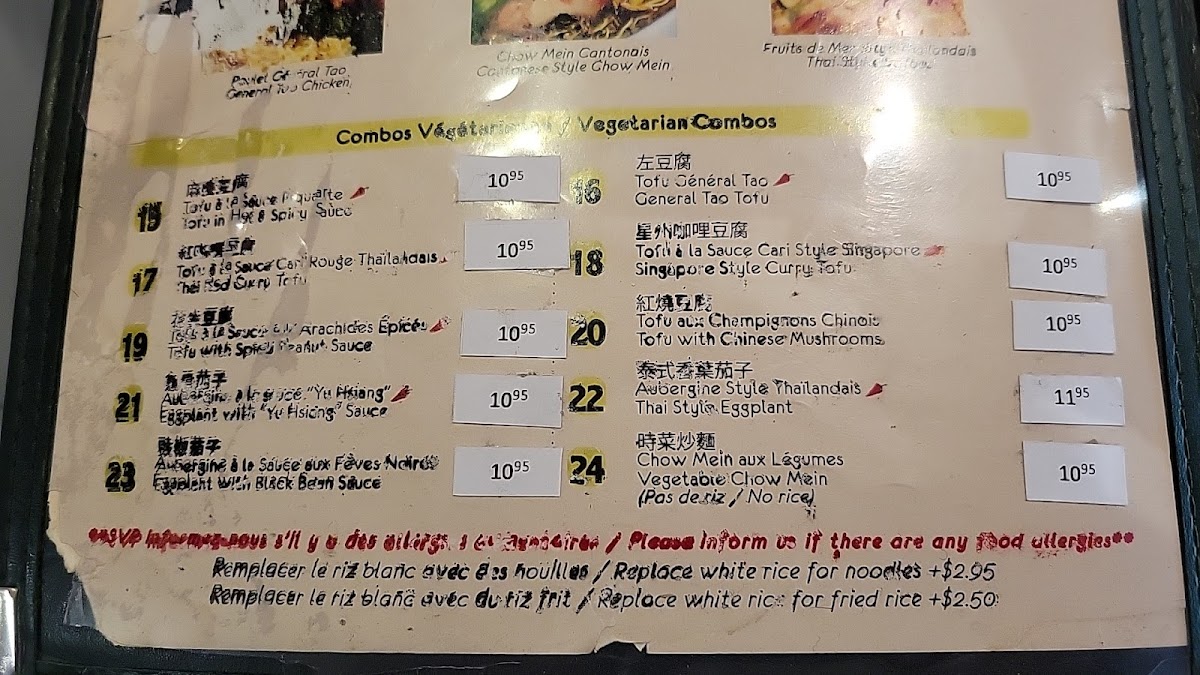 General Tao Chicken
Chow Mein Cantonais
Cantonese Style Chow Mein
Fruits de Mer Style Thaïlandais
Thai Style
Combos Végétariens / Vegetarian Combos
15
豆腐
Tofu à la Sauce Piquante
Tofu in Hot & Spicy Sauce
10⁹⁵
16
左豆腐
Tofu Général Tao
General Tao Tofu
10⁹⁵
17
豆腐
Tofu à la Sauce Cari Rouge Thaïlandais
Thai Red Curry Tofu
10⁹⁵
18
星州咖哩豆腐
Tofu à la Sauce Cari Style Singapore
Singapore Style Curry Tofu
10⁹⁵
19
豆腐
Tofu à la Sauce aux Arachides Épicés
Tofu with Spicy Peanut Sauce
10⁹⁵
20
紅燒豆腐
Tofu aux Champignons Chinois
Tofu with Chinese Mushrooms
10⁹⁵
21
魚香茄子
Aubergine à la sauce "Yu Hsiang"
Eggplant with "Yu Hsiang" Sauce
10⁹⁵
22
泰式香葉茄子
Aubergine Style Thaïlandais
Thai Style Eggplant
11⁹⁵
23
豉椒茄子
Aubergine à la Sauce aux Fèves Noires
Eggplant with Black Bean Sauce
10⁹⁵
24
時菜炒麵
Chow Mein aux Légumes
Vegetable Chow Mein
(Pas de riz / No rice)
10⁹⁵
**SVP informez-nous s'il y a des allergies alimentaires / Please inform us if there are any food allergies**
Remplacer le riz blanc avec des nouilles / Replace white rice for noodles +$2.95
Remplacer le riz blanc avec du riz frit / Replace white rice for fried rice +$2.50